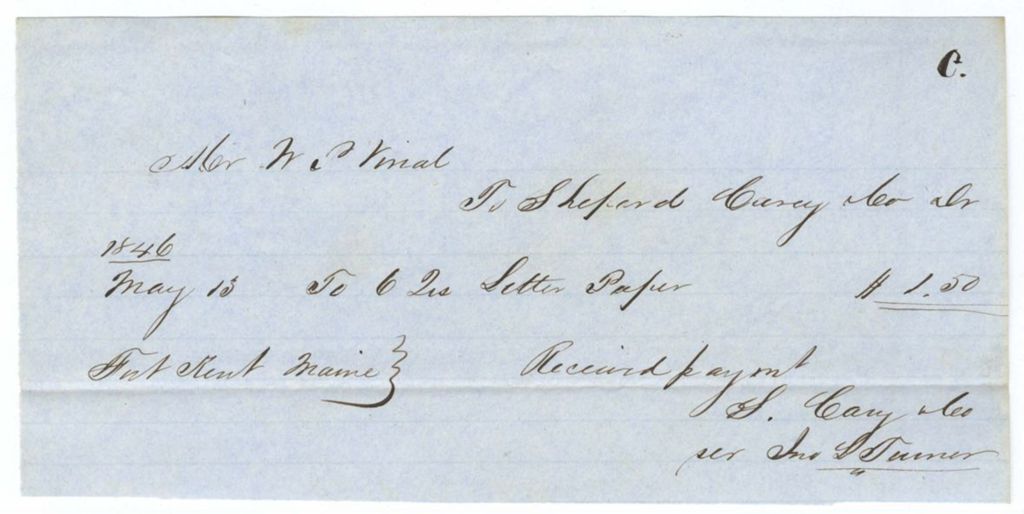 C.
Mr W P Vinal
To Sheperd Carey & Co Dr
1846
May 13 To 6 Qrs Letter Paper $ 1.50
Fort Kent Maine } Received paymt
S. Cary & Co
per Jno S Turner